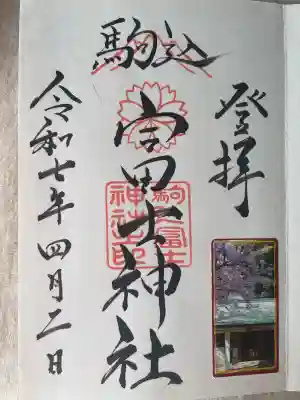 登拝
駒込
冨田士神社
駒込富士
神社之印
令和七年四月二日